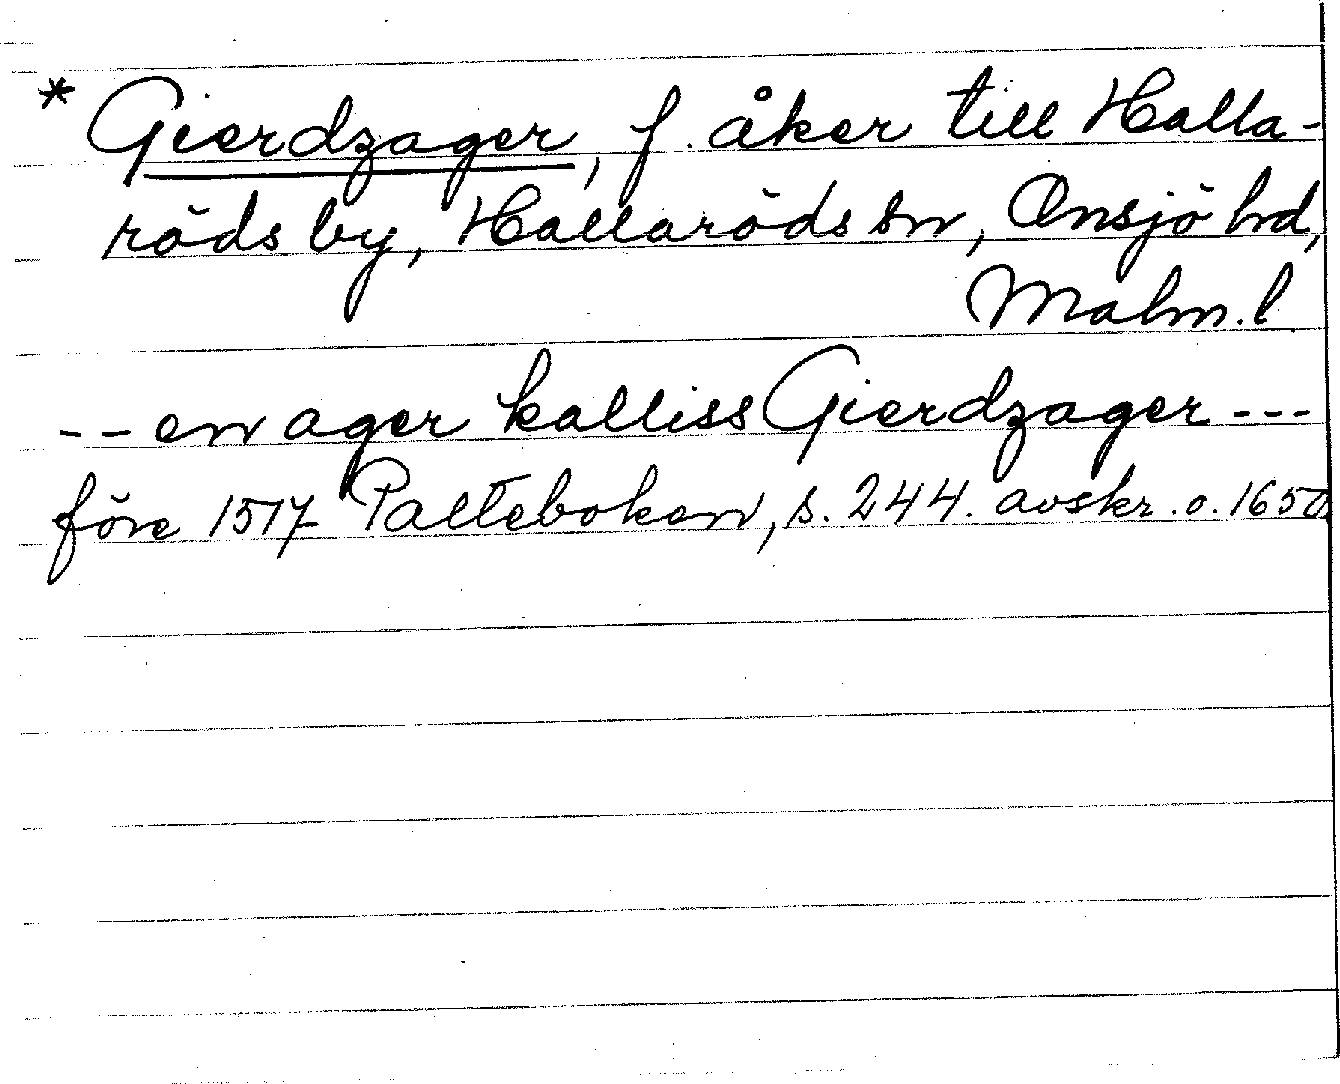 * Gierdzager, f. åker till Halla-
röds by, Hallaröds sn, Onsjö hd,
Malm. l.
-- en ager kalliss Gierdzager ---
före 1517 Palteboken, s. 244. avskr. o. 1650.